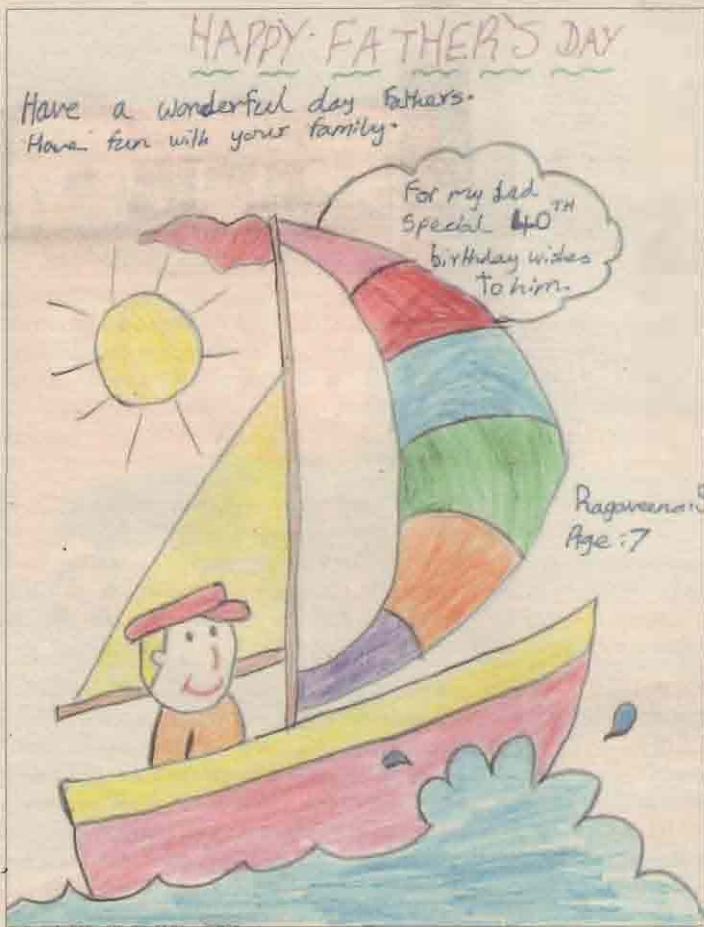 HAPPY FATHER'S DAY
Have a wonderful day fathers.
Have fun with your family.
For my dad
Special 40TH
birthday wishes
to him.
Ragaveena.S
Age :7